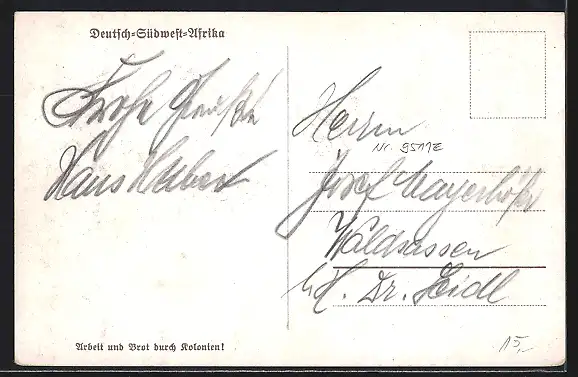 Deutsch-Südwest-Afrika
Frohe Grüße
Hans Huber
Herrn
Nr. 9511Z
Josef Mayerhöfer
Waldsassen
b/H. Dr. Seidl
Arbeit und Brot durch Kolonien!
15,-